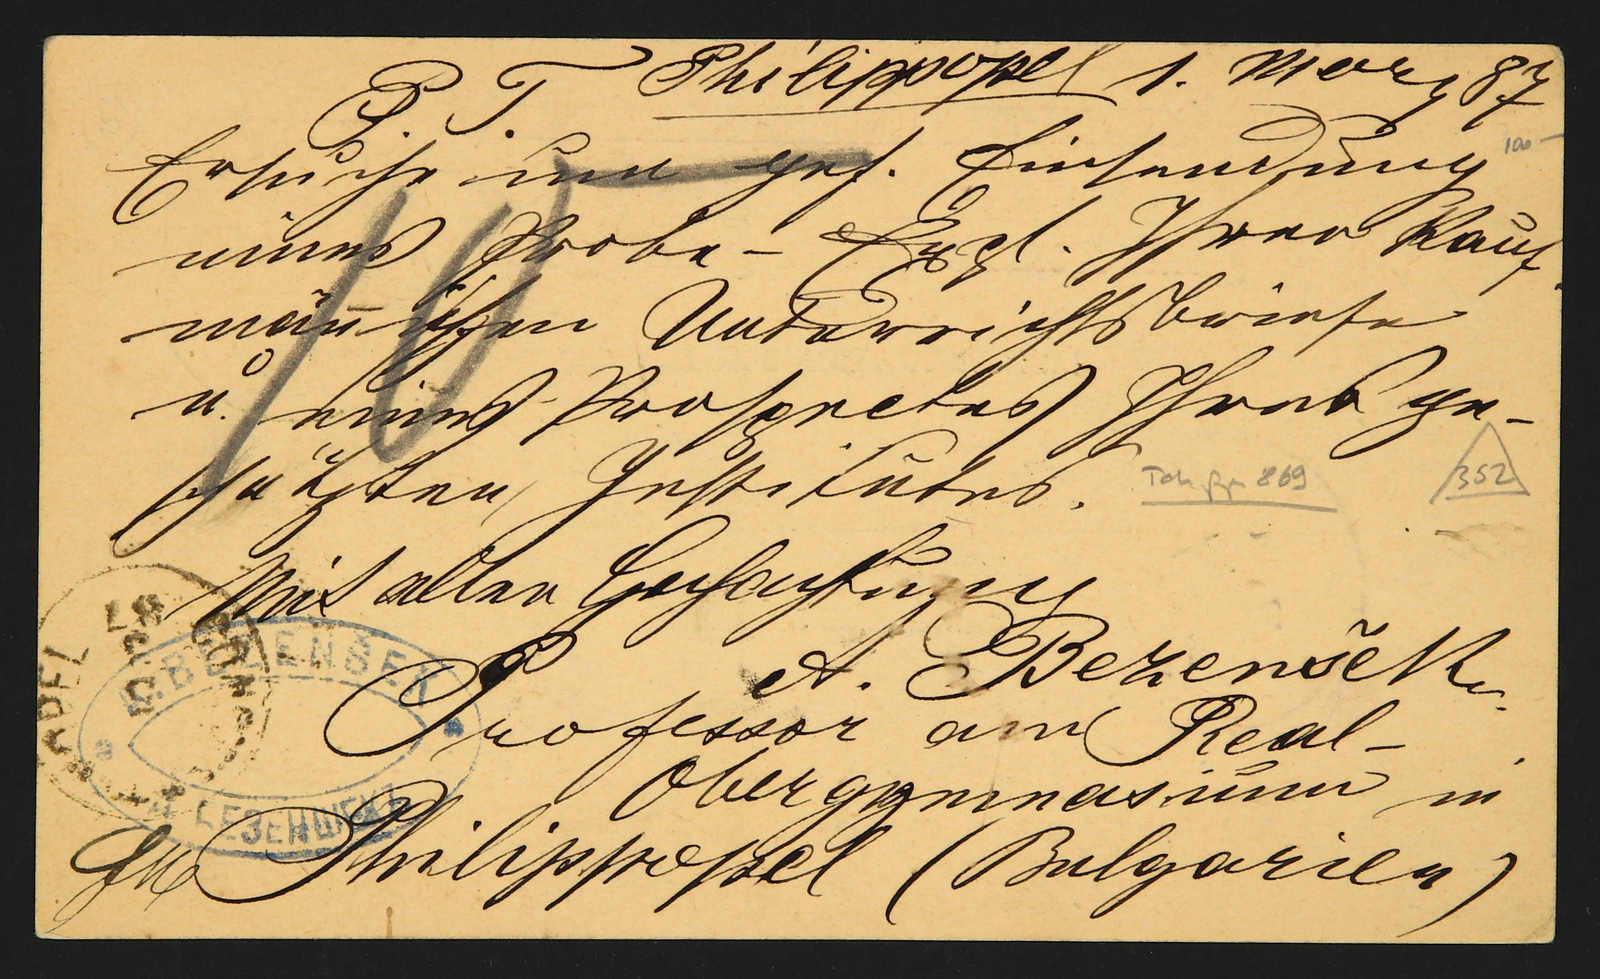 Philippopel 1. März 87
P. T.
100 -
Ersuche um gef. Einsendung
eines Probe-Expl. Ihrer Kauf-
männischen Unterrichtsbriefe
u. eines Prospectes Ihres ge-
schätzten Institutes.
10
869
352
Mit aller Hochachtung
A. Bezenšek
Professor am Real-
Obergymnasium in
Philippopel (Bulgarien)
A. BEZENŠEK
А. БЕЗЕНШЕКЪ